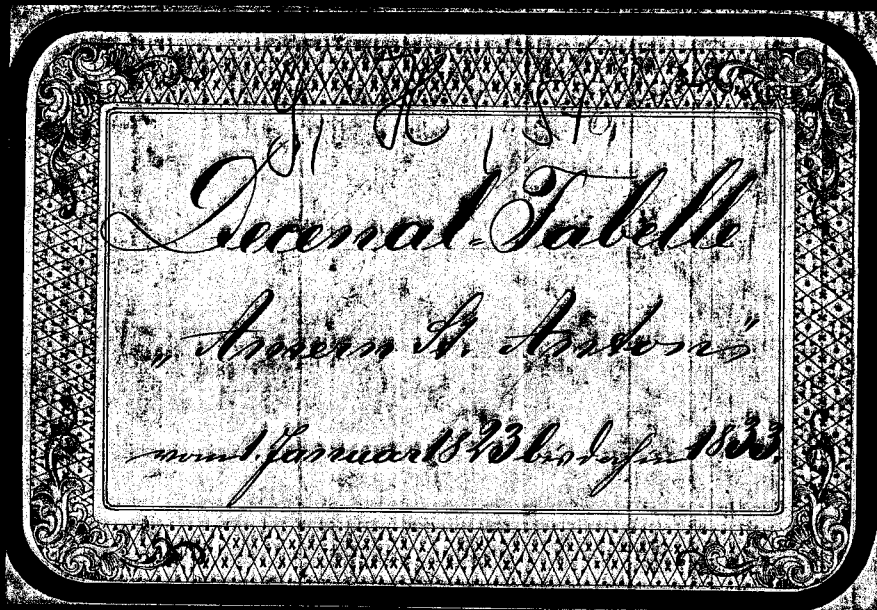 Decenal-Tabelle
„Amern St. Anton“
vom 1. Januar 1823 bis dahin 1833.